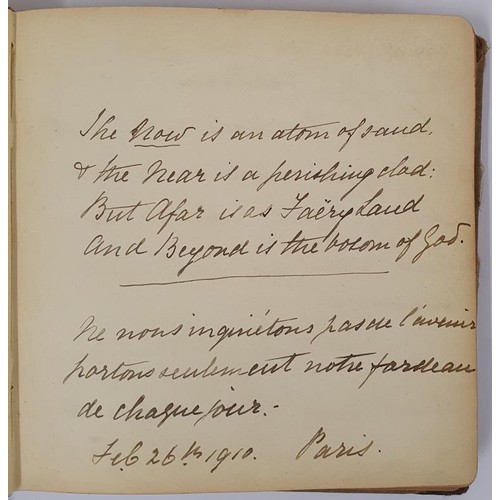 The Now is an atom of sand,
& the Near is a perishing clod:
But Afar is as Faëry Land
And Beyond is the bosom of God.
Ne nous inquiétons pas de l'avenir
portons seulement notre fardeau
de chaque jour.-
Feb 26th 1910. Paris.